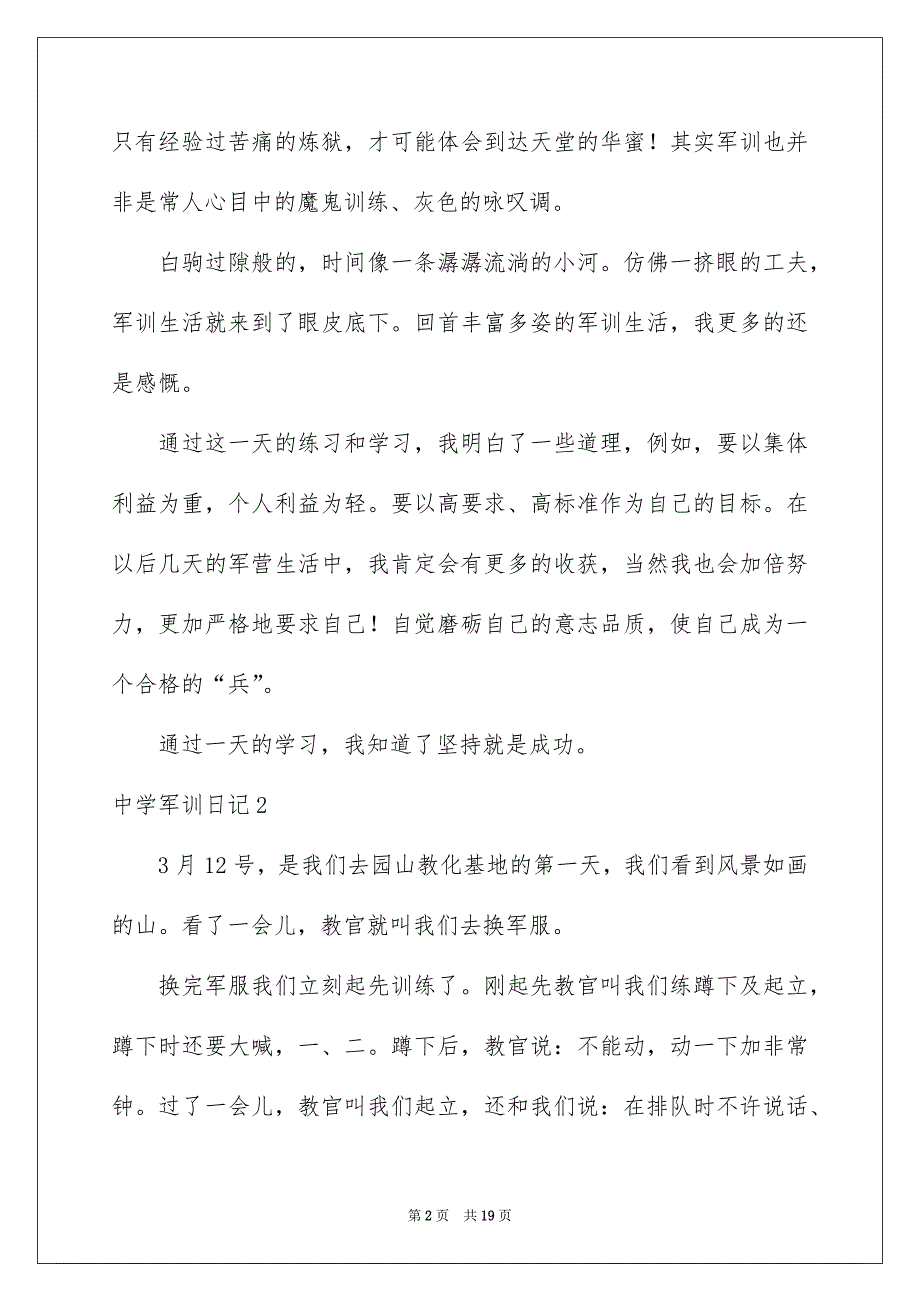 只有经验过苦痛的炼狱，才可能体会到达天堂的华蜜！其实军训也并
非是常人心目中的魔鬼训练、灰色的咏叹调。
白驹过隙般的，时间像一条潺潺流淌的小河。仿佛一挤眼的工夫，
军训生活就来到了眼皮底下。回首丰富多姿的军训生活，我更多的还
是感慨。
通过这一天的练习和学习，我明白了一些道理，例如，要以集体
利益为重，个人利益为轻。要以高要求、高标准作为自己的目标。在
以后几天的军营生活中，我肯定会有更多的收获，当然我也会加倍努
力，更加严格地要求自己！自觉磨砺自己的意志品质，使自己成为一
个合格的“兵”。
通过一天的学习，我知道了坚持就是成功。
中学军训日记 2
3 月 12 号，是我们去园山教化基地的第一天，我们看到风景如画
的山。看了一会儿，教官就叫我们去换军服。
换完军服我们立刻起先训练了。刚起先教官叫我们练蹲下及起立，
蹲下时还要大喊，一、二。蹲下后，教官说：不能动，动一下加非常
钟。过了一会儿，教官叫我们起立，还和我们说：在排队时不许说话、
第 2 页 共 19 页